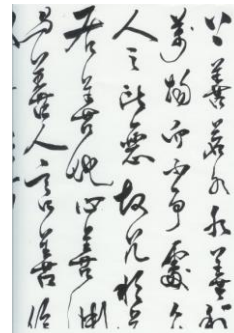 上善若水水善利
萬物而不爭處眾
人之所惡故几於
居善地心善淵
與善人言善信